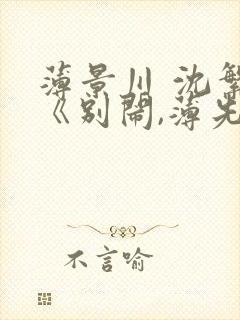 薄景川 沈
《别闹,薄先
不言喻